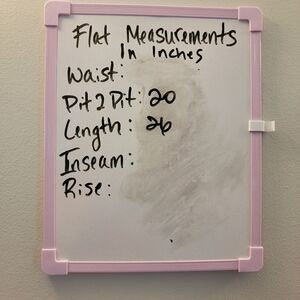 Flat Measurements
In Inches
Waist:
Pit2Pit: 20
Length: 26
Inseam:
Rise: